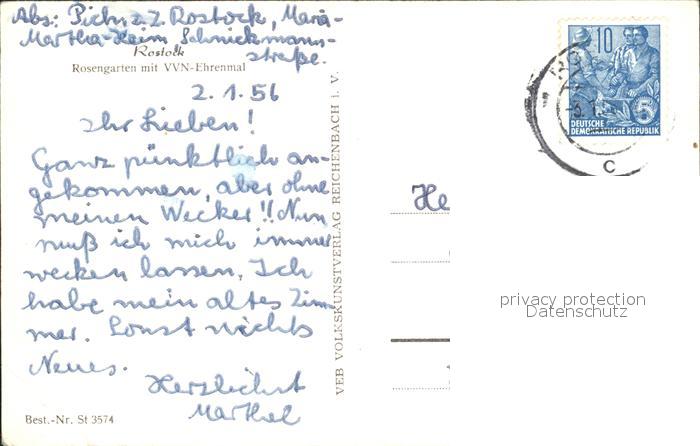 Abs: Pich, z. Z. Rostock, Maria-
Martha-Heim Schnickmann-
straße.
Rostock
Rosengarten mit VVN-Ehrenmal
2.1.56
Ihr Lieben!
Ganz pünktlich an-
gekommen, aber ohne
meinen Wecker!! Nun
muß ich mich immer
wecken lassen. Ich
habe mein altes Zim-
mer. Sonst nichts
Neues.
Herzlichst
Marthel
Best.-Nr. St 3574
VEB VOLKSKUNSTVERLAG REICHENBACH i. V.
10
5
DEUTSCHE
DEMOKRATISCHE REPUBLIK
C
He
privacy protection
Datenschutz